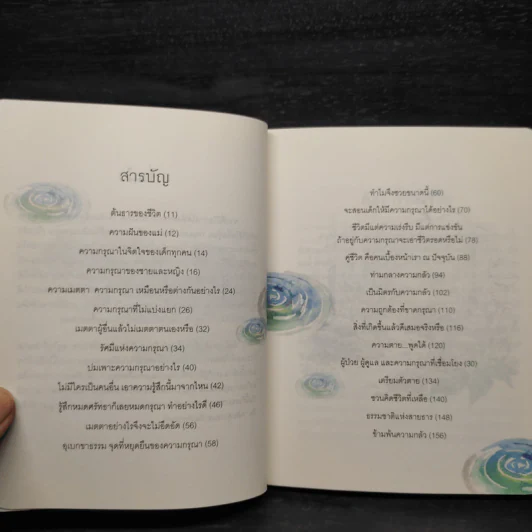 สารบัญ
ต้นธารของชีวิต (11)
ความฝันของแม่ (12)
ความกรุณาในจิตใจของเด็กทุกคน (14)
ความกรุณาของชายและหญิง (16)
ความเมตตา ความกรุณา เหมือนหรือต่างกันอย่างไร (24)
ความกรุณาที่ไม่แบ่งแยก (26)
เมตตาผู้อื่นแล้วไม่เมตตาตนเองหรือ (32)
รัศมีแห่งความกรุณา (34)
บ่มเพาะความกรุณาอย่างไร (40)
ไม่มีใครเป็นคนอื่น เอาความรู้สึกนี้มาจากไหน (42)
รู้สึกหมดศรัทธาก็เลยหมดกรุณา ทำอย่างไรดี (46)
เมตตาอย่างไรจึงจะไม่อึดอัด (56)
อุเบกขาธรรม จุดที่หยุดยืนของความกรุณา (58)
ทำไมจึงซวยขนาดนี้ (60)
จะสอนเด็กให้มีความกรุณาได้อย่างไร (70)
ชีวิตมีแต่ความเร่งรีบ มีแต่การแข่งขัน
ถ้าอยู่กับความกรุณาจะเอาชีวิตรอดหรือไม่ (78)
คู่ชีวิต คือคนเบื้องหน้าเรา ณ ปัจจุบัน (88)
ท่ามกลางความกลัว (94)
เป็นมิตรกับความกลัว (102)
ความถูกต้องที่ขาดกรุณา (110)
สิ่งที่เกิดขึ้นแล้วดีเสมอจริงหรือ (116)
ความตาย...พูดได้ (120)
ผู้ป่วย ผู้ดูแล และความกรุณาที่เชื่อมโยง (30)
เตรียมตัวตาย (134)
ชวนคิดชีวิตที่เหลือ (140)
ธรรมชาติแห่งสายธาร (148)
ข้ามพ้นความกลัว (156)